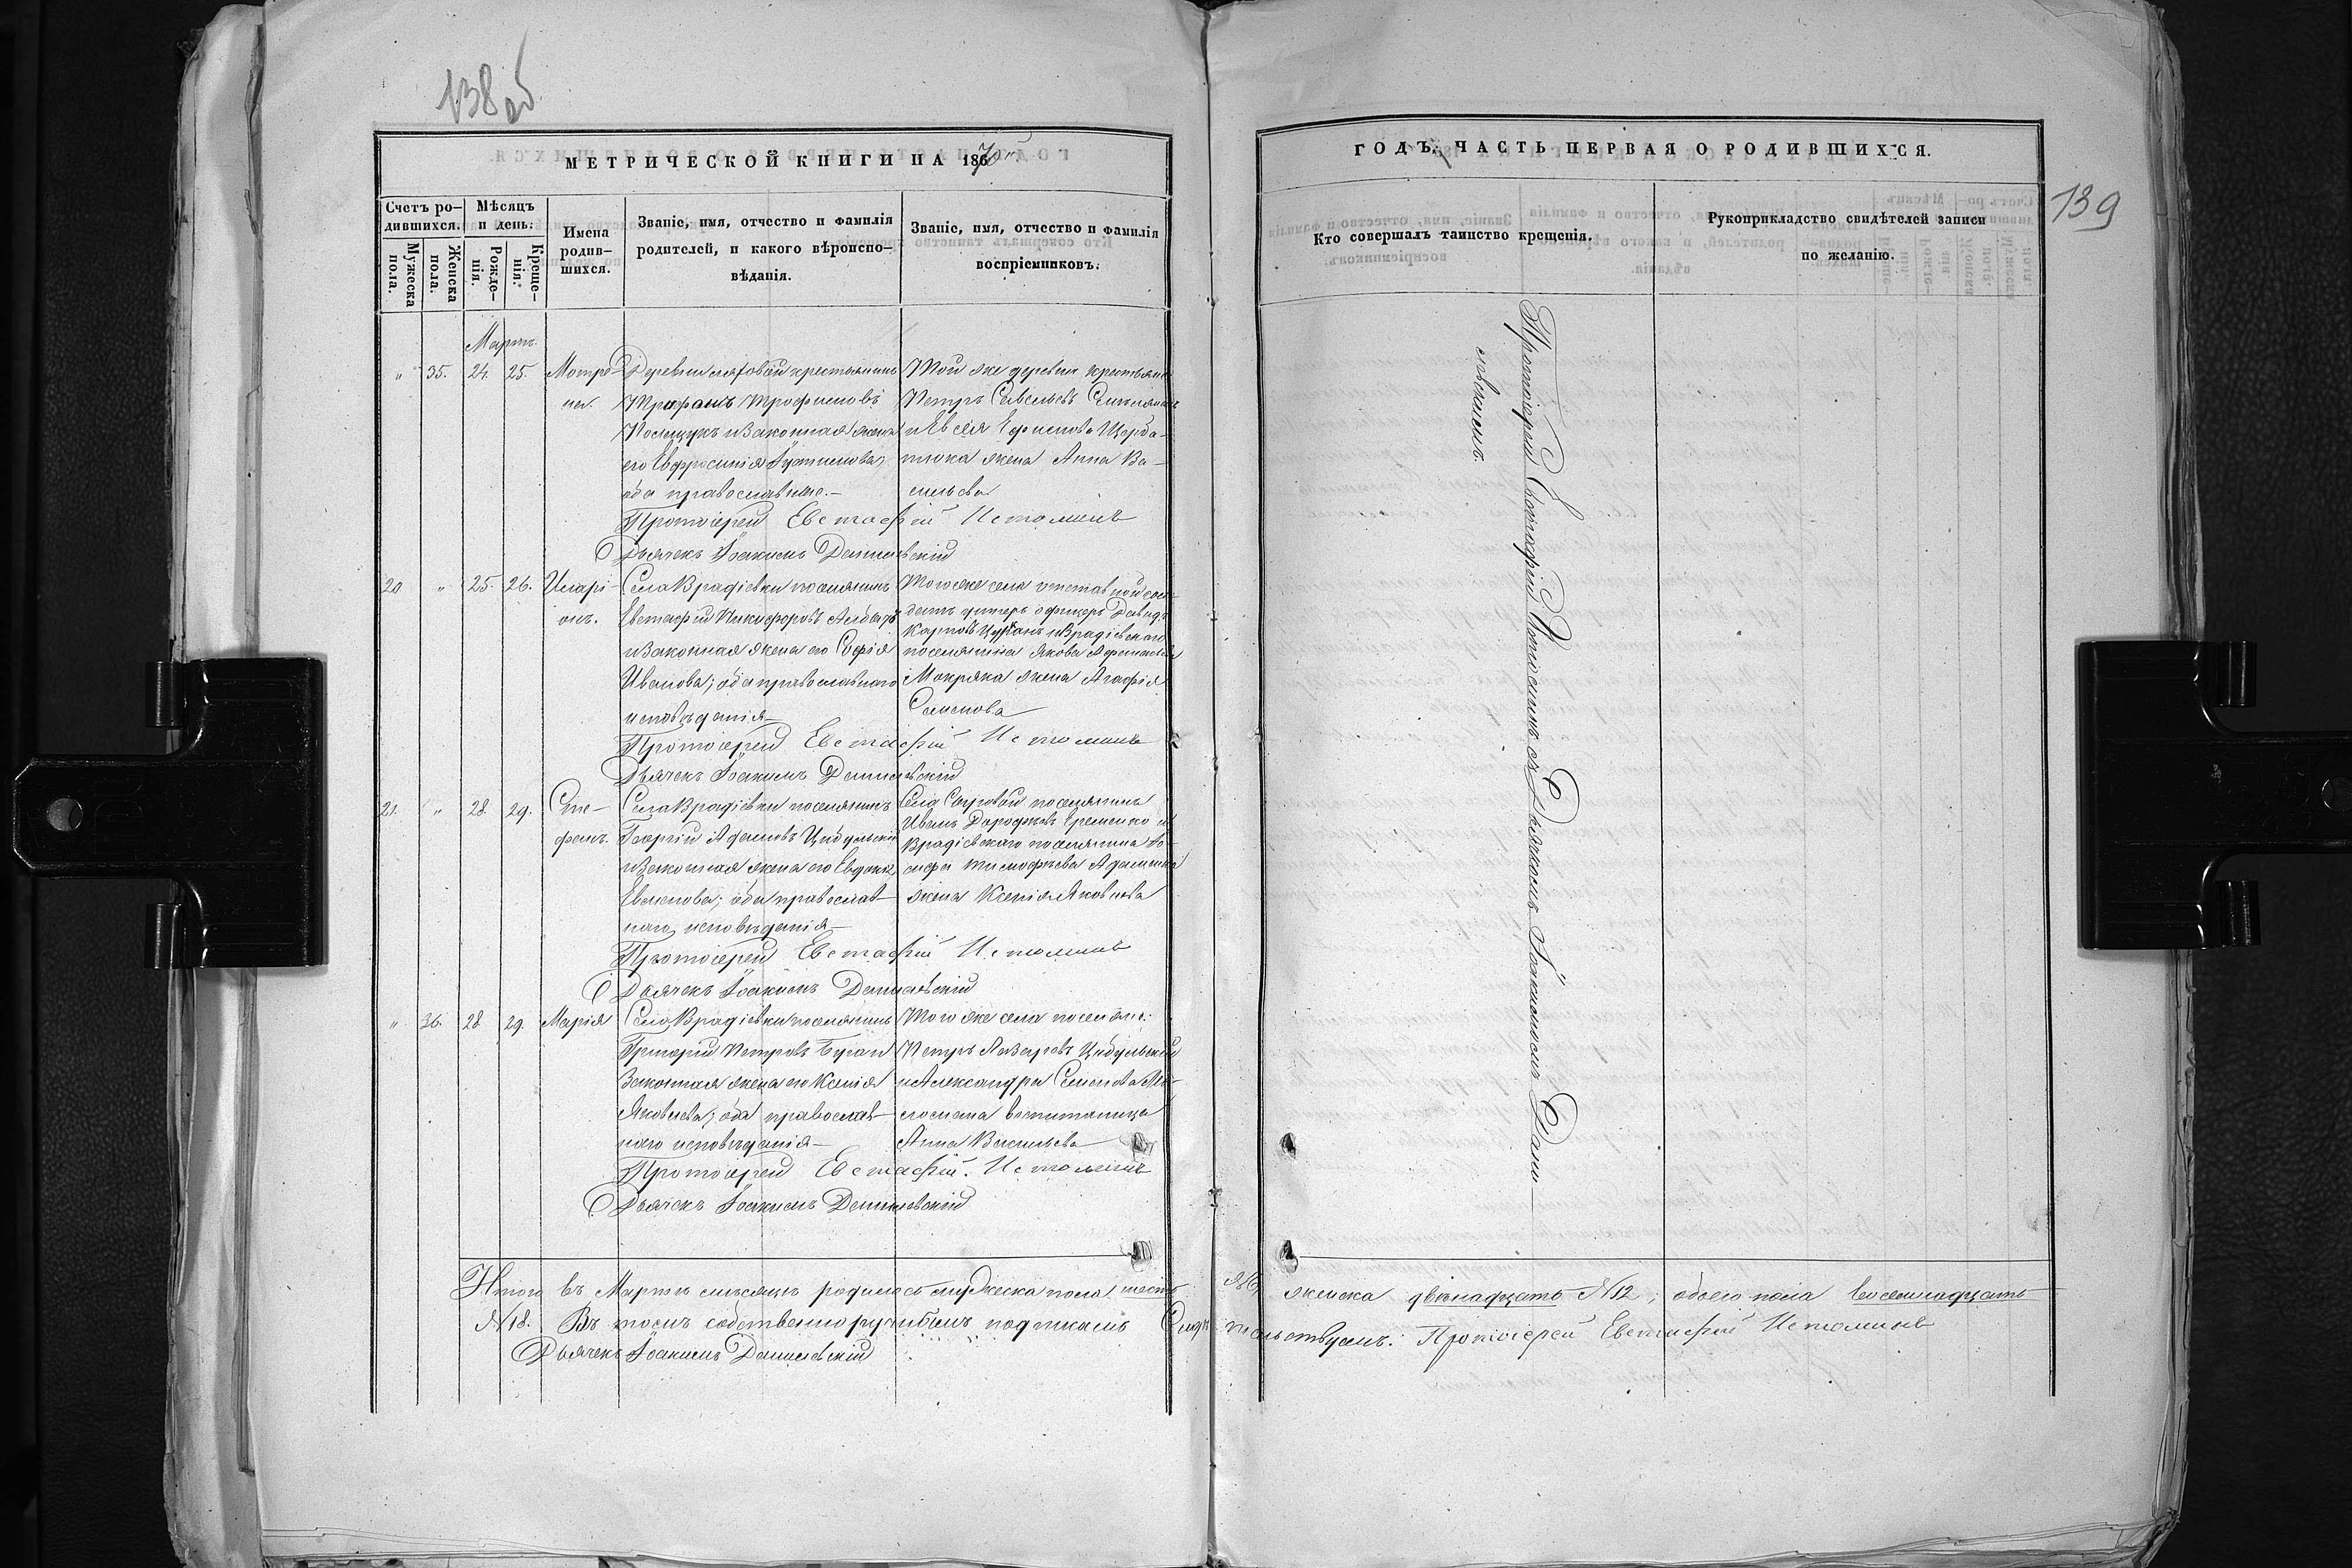 138 об
МЕТРИЧЕСКОЙ КНИГИ НА 1870
Счетъ родившихся.
Мѣсяцъ и день:
Имена родившихся.
Званіе, имя, отчество и фамилія родителей, и какого вѣроисповѣданія.
Званіе, имя, отчество и фамилія воспріемниковъ.
Мужеска пола.
Женска пола.
Рожденія.
Крещенія.
Мартъ
" 35. 24. 25. Мотре-
на.
Деревни крестьянинъ
Трофимовъ
и законная жена
его Евфросинія Устинова;
оба православные.—
Той же деревни крестьяне
Петръ Савельевъ
и Ефимова Щерба-
тюка жена Анна Ва-
сильева
Протоіерей Евстафій Истоминъ
Дьячекъ Іоакимъ Данилевскій
20 " 25. 26. Иларі-
онъ.
Села Врадіевки поселянинъ
Евстафій Никифоровъ
и законная жена его Софія
Иванова; оба православнаго
исповѣданія—
Того же села отставной сол-
датъ унтеръ офицеръ Давидъ
Карповъ и Врадіевскаго
поселянина Якова
Мокряка жена Агафія
Семенова
Протоіерей Евстафій Истоминъ
Дьячекъ Іоакимъ Данилевскій
21. " 28. 29. Сте-
фанъ.
Села Врадіевки поселянинъ
Георгій Адамовъ Цибульскій
и законная жена его
; оба православ-
наго исповѣданія—
Села поселянинъ
Иванъ Дорофеевъ Еременко и
Врадіевскаго поселянина Іо-
сифа Тимофѣева
жена Ксенія Яковлева
Протоіерей Евстафій Истоминъ
Дьячекъ Іоакимъ Данилевскій
" 36. 28 29. Марія
Села Врадіевки поселянинъ
Григорій Петровъ
законная жена его Ксенія
Яковлева; оба православ-
наго исповѣданія—
Того же села поселяне:
Петръ Лазаревъ Цибульскій
и Александра Семенова
воспитанница
Анна Васильева
Протоіерей Евстафій Истоминъ
Дьячекъ Іоакимъ Данилевскій
Итого въ Мартѣ мѣсяцѣ родилось мужеска пола шесть №6, женска двѣнадцать №12; обоего пола восемнадцать
№18. Въ томъ собственноручнымъ подписомъ Свидѣтельствуемъ: Протоіерей Евстафій Истоминъ
Дьячекъ Іоакимъ Данилевскій
ГОДЪ, ЧАСТЬ ПЕРВАЯ О РОДИВШИХСЯ.
139
Кто совершалъ таинство крещенія.
Рукоприкладство свидѣтелей записи по желанію.
Протоіерей Евстафій Истоминъ съ Дьячкомъ Іоакимомъ Дани-
левскимъ.